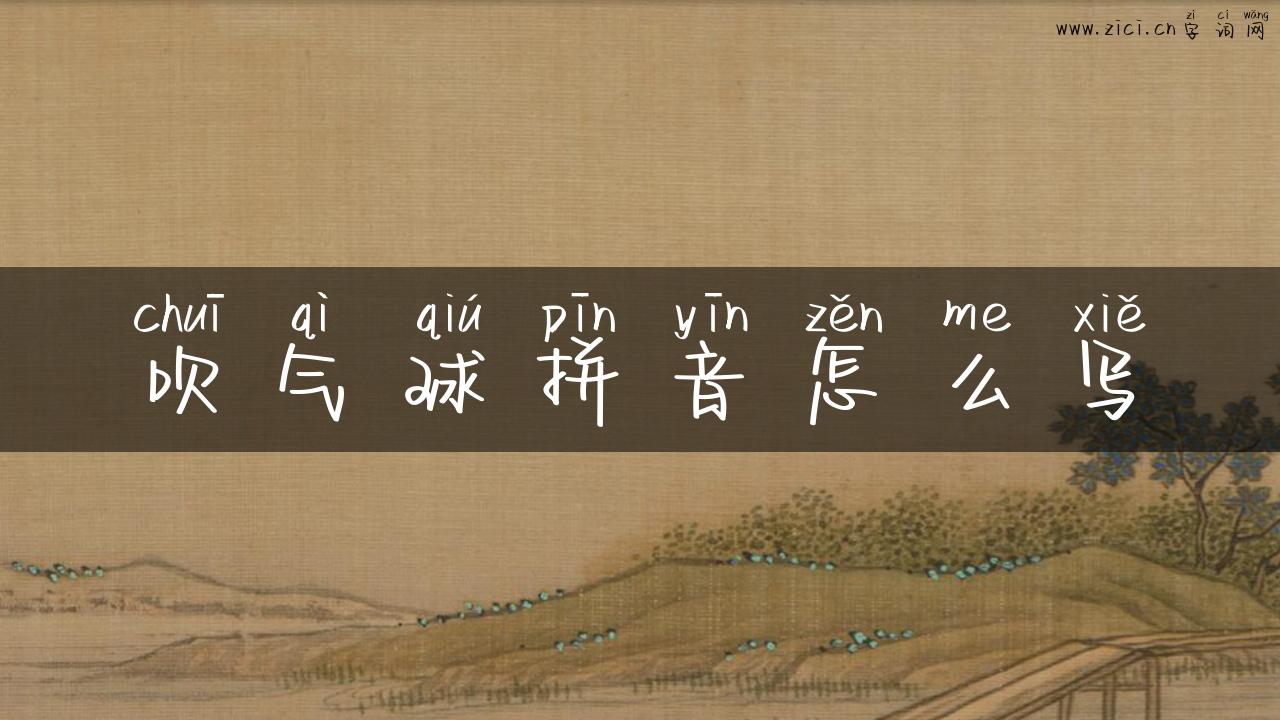 zì cí wǎng
www.zici.cn字词网
chuī qì qiú pīn yīn zěn me xiě
吹气球拼音怎么写